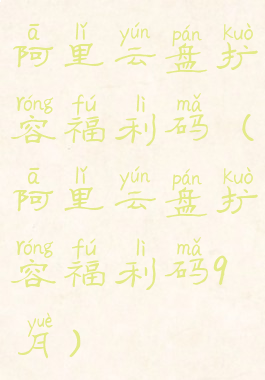 ā lǐ yún pán kuò
阿里云盘扩
róng fú lì mǎ
容福利码（
ā lǐ yún pán kuò
阿里云盘扩
róng fú lì mǎ
容福利码9
yuè
月）